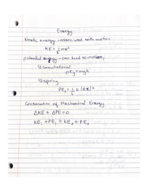 Energy
Kinetic energy - associated with motion
KE = ½mv²
potential energy - can lead to motion
Gravitational
PEg = mgh
Spring
PEs = ½ k (Δx)²
Conservation of Mechanical Energy
ΔKE + ΔPE = 0
KE₁ + PE₁ = KE₂ + PE₂